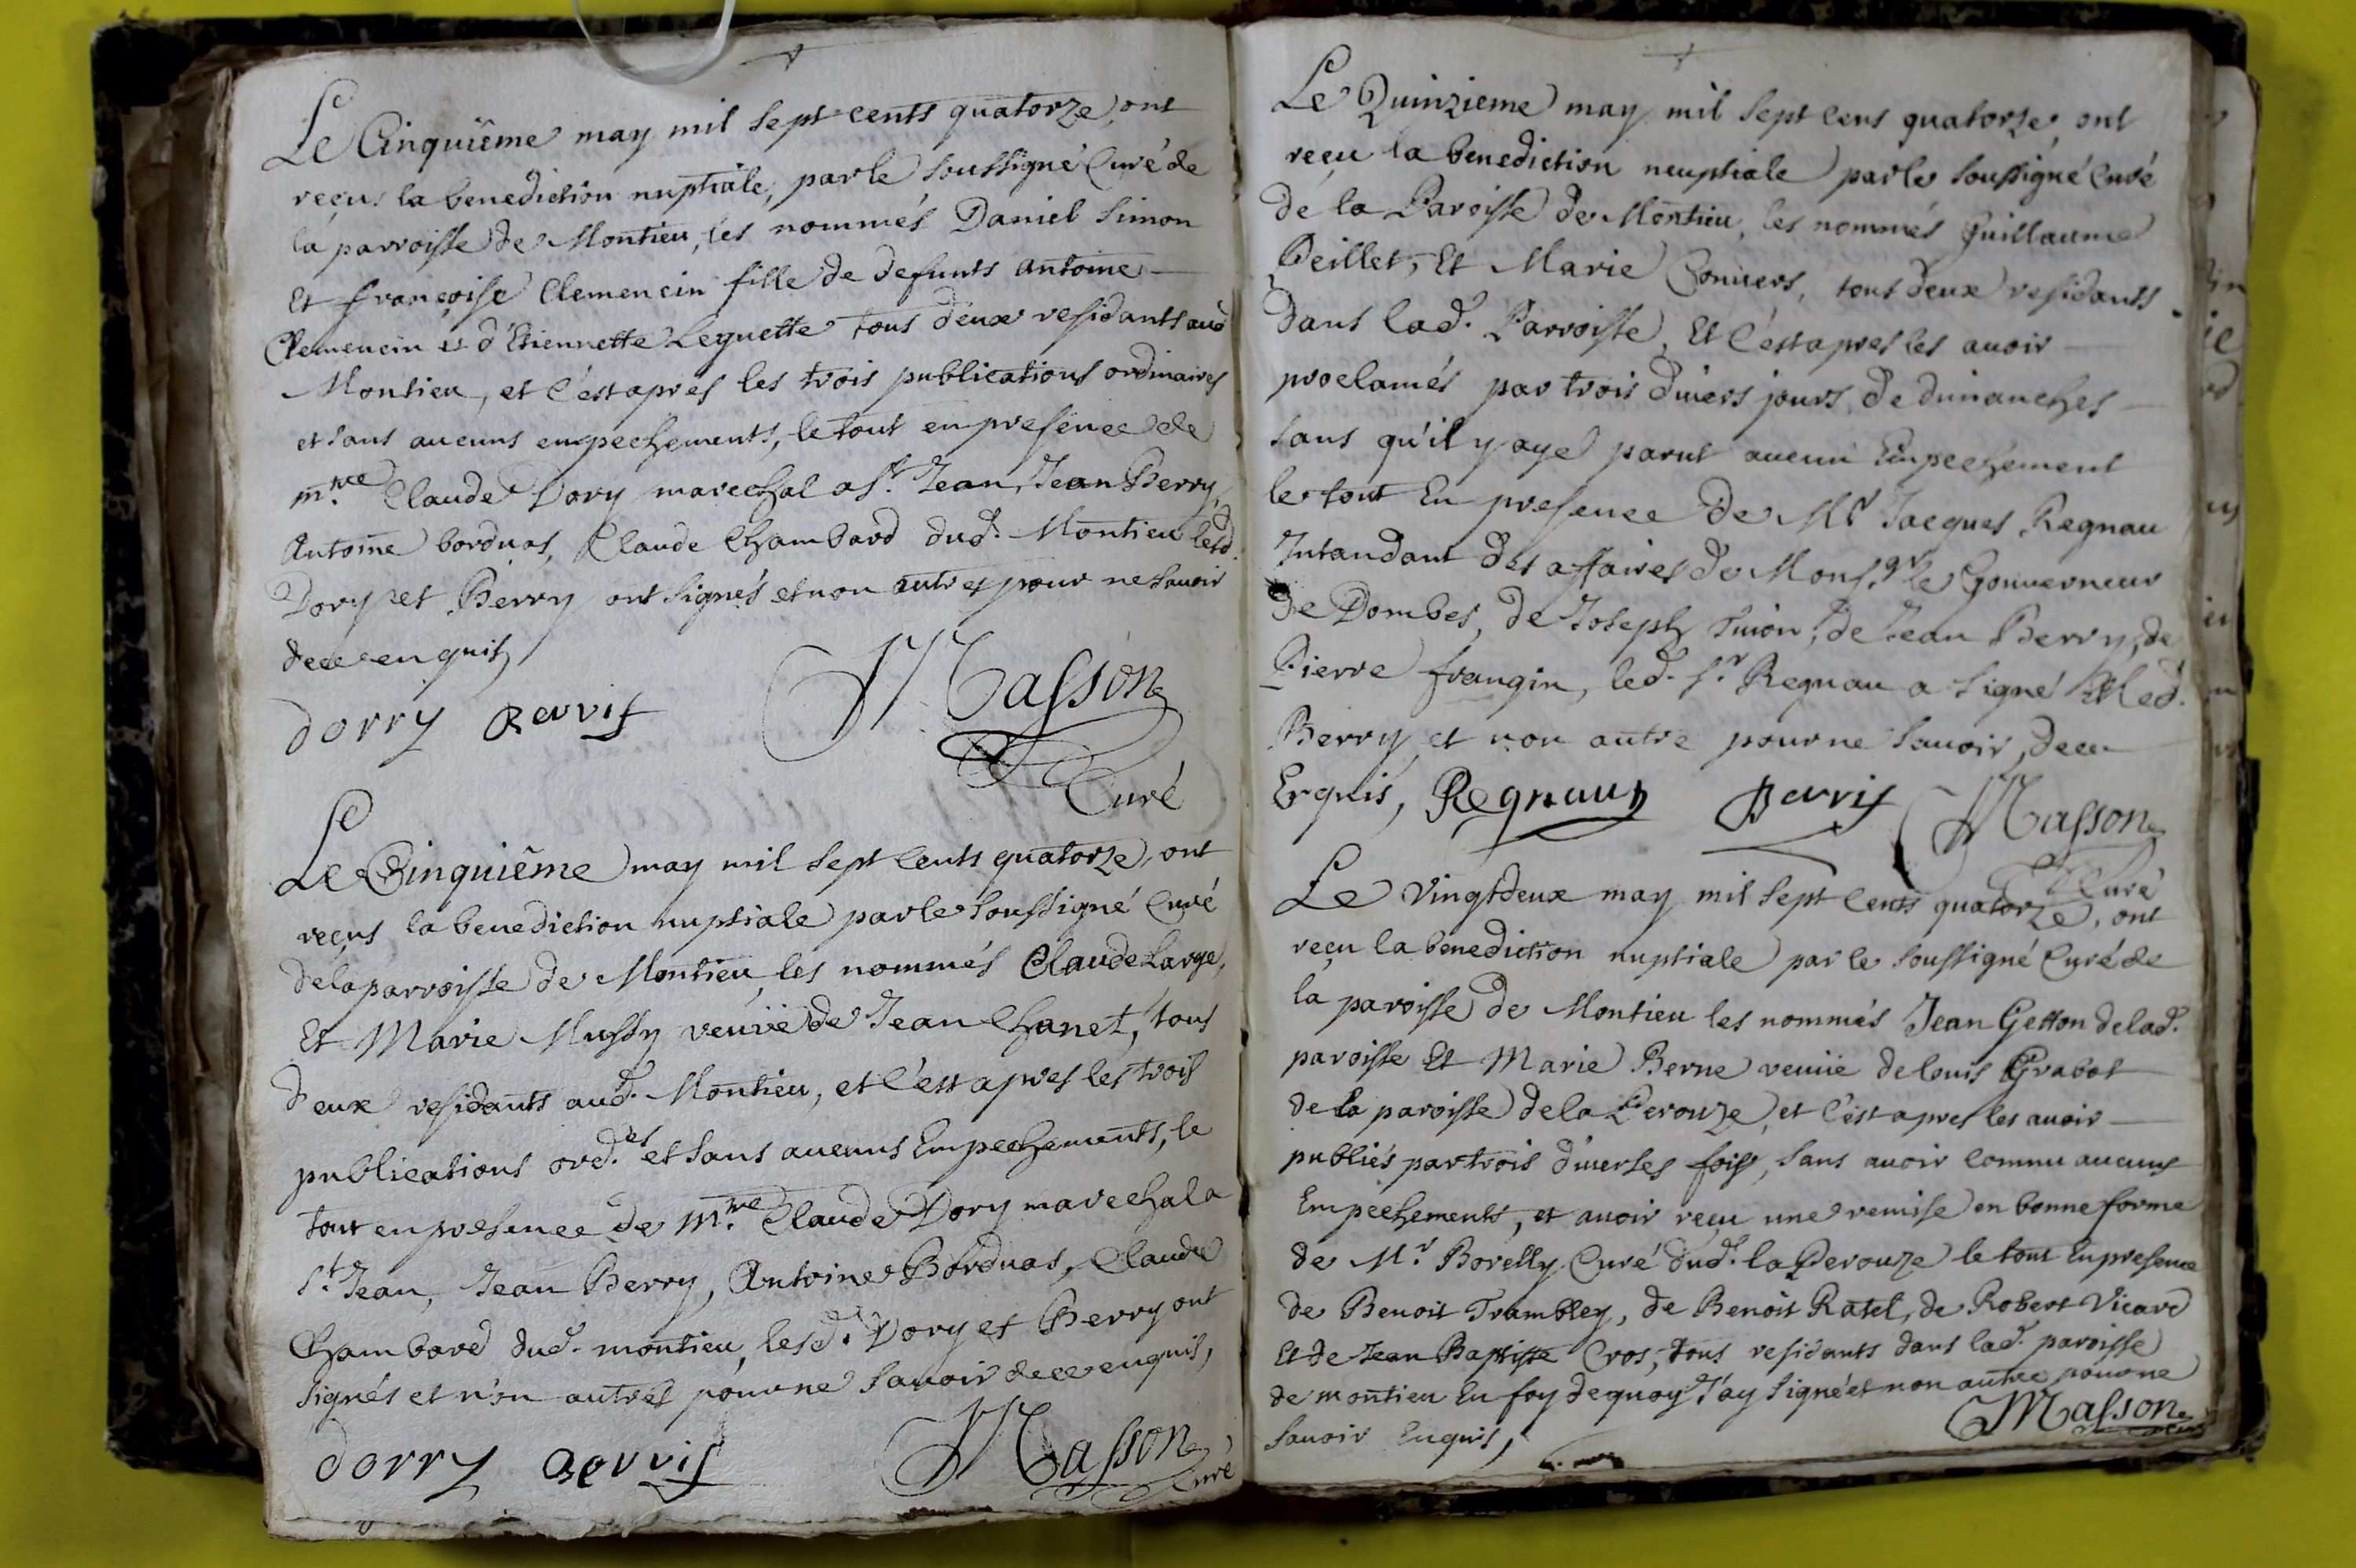 Le Cinquiême may mil sept cents quatorze, ont
reçus la benediction nuptiale, par le soussigné Curé de
la parroisse de Montieu, les nommés Daniel Simon
Et françoise Clemencin fille de defunts antoine
Clemencin et d'Etiennette Leguette tous deux residants aud
Montieu, et c'est apres les trois publications ordinaires
et sans aucuns empechements, le tout en presence de
m.re Claude Dory marechal a St. Jean, Jean Berry,
Antoine borduas, Claude Chambard dud. Montieu lesd.
Dory et Berry ont signés et non autres pour ne savoir
de ce enquis
dorry Berris Masson
Curé
Le Cinquiême may mil sept cents quatorze, ont
reçus la benediction nuptiale par le soussigné Curé
de la parroisse de Montieu les nommés Claude Large,
Et Marie Mussy veuve de Jean Chanet, tous
deux residants aud. Montieu, et c'est apres les trois
publications ord.es et sans aucuns Empechements, le
tout en presence de m.re Claude Dory marechal a
St. Jean, Jean Berry, Antoine Borduas, Claude
Chambard dud. montieu, lesd. Dory et Berry ont
signés et non autres pour ne savoir de ce enquis,
dorry Berris Masson
Curé
Le Quinzieme may mil sept cens quatorze ont
reçu la benediction neuptiale par le soussigné Curé
de la Paroisse de Montieu, les nommés Guillaume
Peillet, Et Marie Convers, tous deux residants
dans lad. Parroisse, Et c'est apres les avoir
proclamés par trois divers jours de dimanches
sans qu'il y aye parut aucun Empechement
le tout En presence de Mr Jacques Regnau
Intandant des affaires de Mons.gr le Gouverneur
de Dombes, de Joseph Guion, de Jean Berry, de
Pierre frangin, led. Sr. Regnau a signé Et led.
Berry, et non autre pour ne savoir, de ce
Enquis, Regnaud Berris Masson
Curé
Le Vingt deux may mil sept cents quatorze, ont
reçu la benediction nuptiale par le soussigné Curé de
la paroisse de Montieu les nommés Jean Getton de lad.
paroisse Et Marie Berne veuve de louis Grabot
de la paroisse de la Perouze, et c'est apres les avoir
publiés par trois diverses fois, sans avoir connu aucuns
Empechements, et avoir reçu une remise en bonne forme
de Mr. Borelly Curé dud. la Perouze le tout En presence
de Benoit Trambley, de Benoit Ratel, de Robert Vicard
Et de Jean Baptiste Cros, tous residants dans lad. paroisse
de montieu En foy de quoy J'ay signé et non autre pour ne
savoir Enquis, Masson